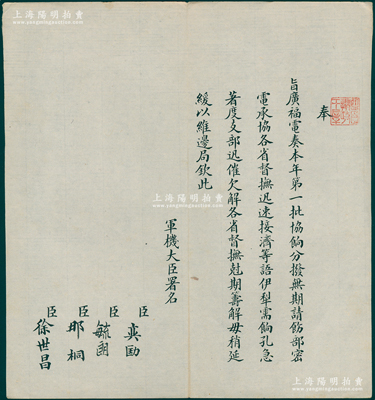 上海陽明拍賣
www.yangmingauction.com
奉
旨廣福電奏本年第一批協餉分撥無期請飭部密
電承協各省督撫迅速接濟等語伊犁需餉孔急
著度支部迅催欠解各省督撫尅期籌解毋稍延
緩以維邊局欽此
軍機大臣署名
臣奕劻
臣毓朗
臣那桐
臣徐世昌